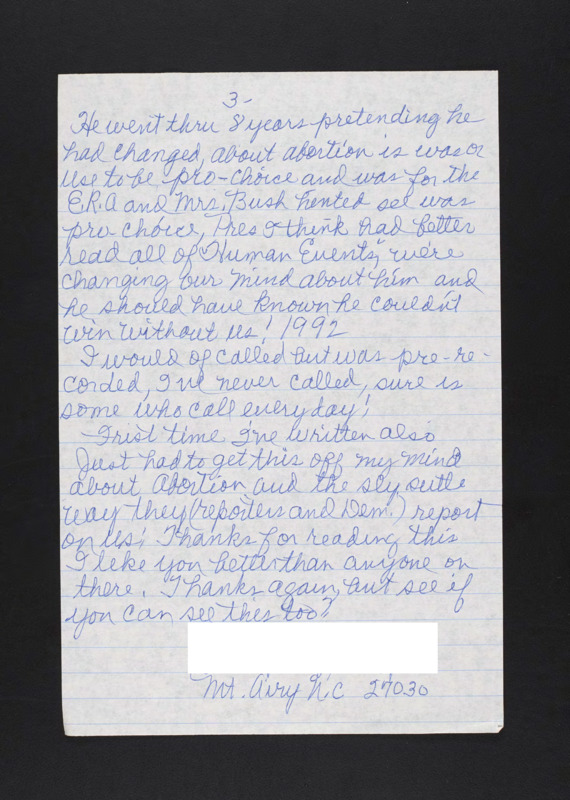 3-
He went thru 8 years pretending he
had changed, about abortion is was or
use to be pro-choice and was for the
E.R.A and Mrs. Bush hented see was
pro choice, Pres I think had better
read all of "Human Events," we're
changing our mind about him and
he should have known he couldn't
win without us! 1992
I would of called but was pre-re-
corded, I've never called, sure is
some who call everyday!
Frist time I've written also
Just had to get this off my mind
about Abortion and the sly sutle
way they (reporters and Dem.) report
on us. Thanks for reading this
I like you better than anyone on
there. Thanks again, but see if
you can see this too?
Mt. Airy N.C 27030